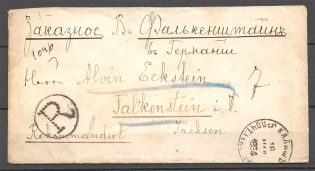 Заказное. Въ Фалькенштайнъ
въ Германіи
Herrn Alvin Eckstein
Falkenstein i. V.
R
Rekommandirt Sachsen